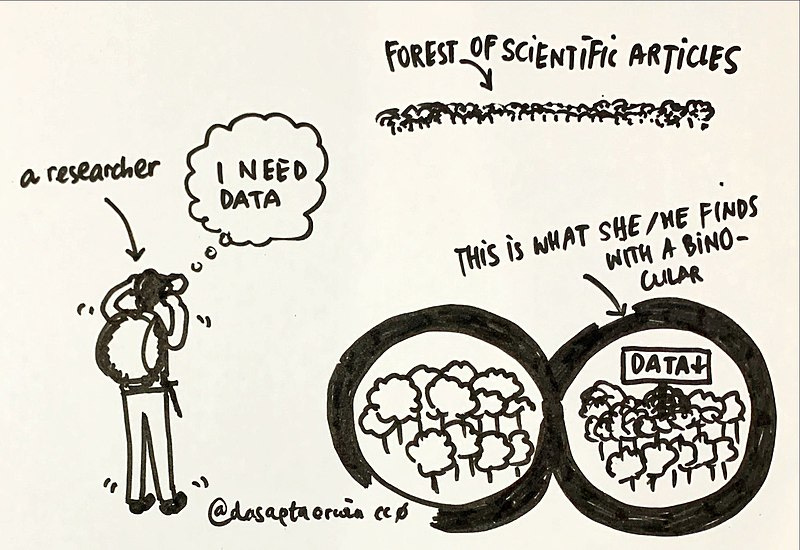 FOREST OF SCIENTIFIC ARTICLES
a researcher
I NEED
DATA
THIS IS WHAT SHE/HE FINDS
WITH A BINO-
CULAR
DATA
@dasaptaerwin cc0